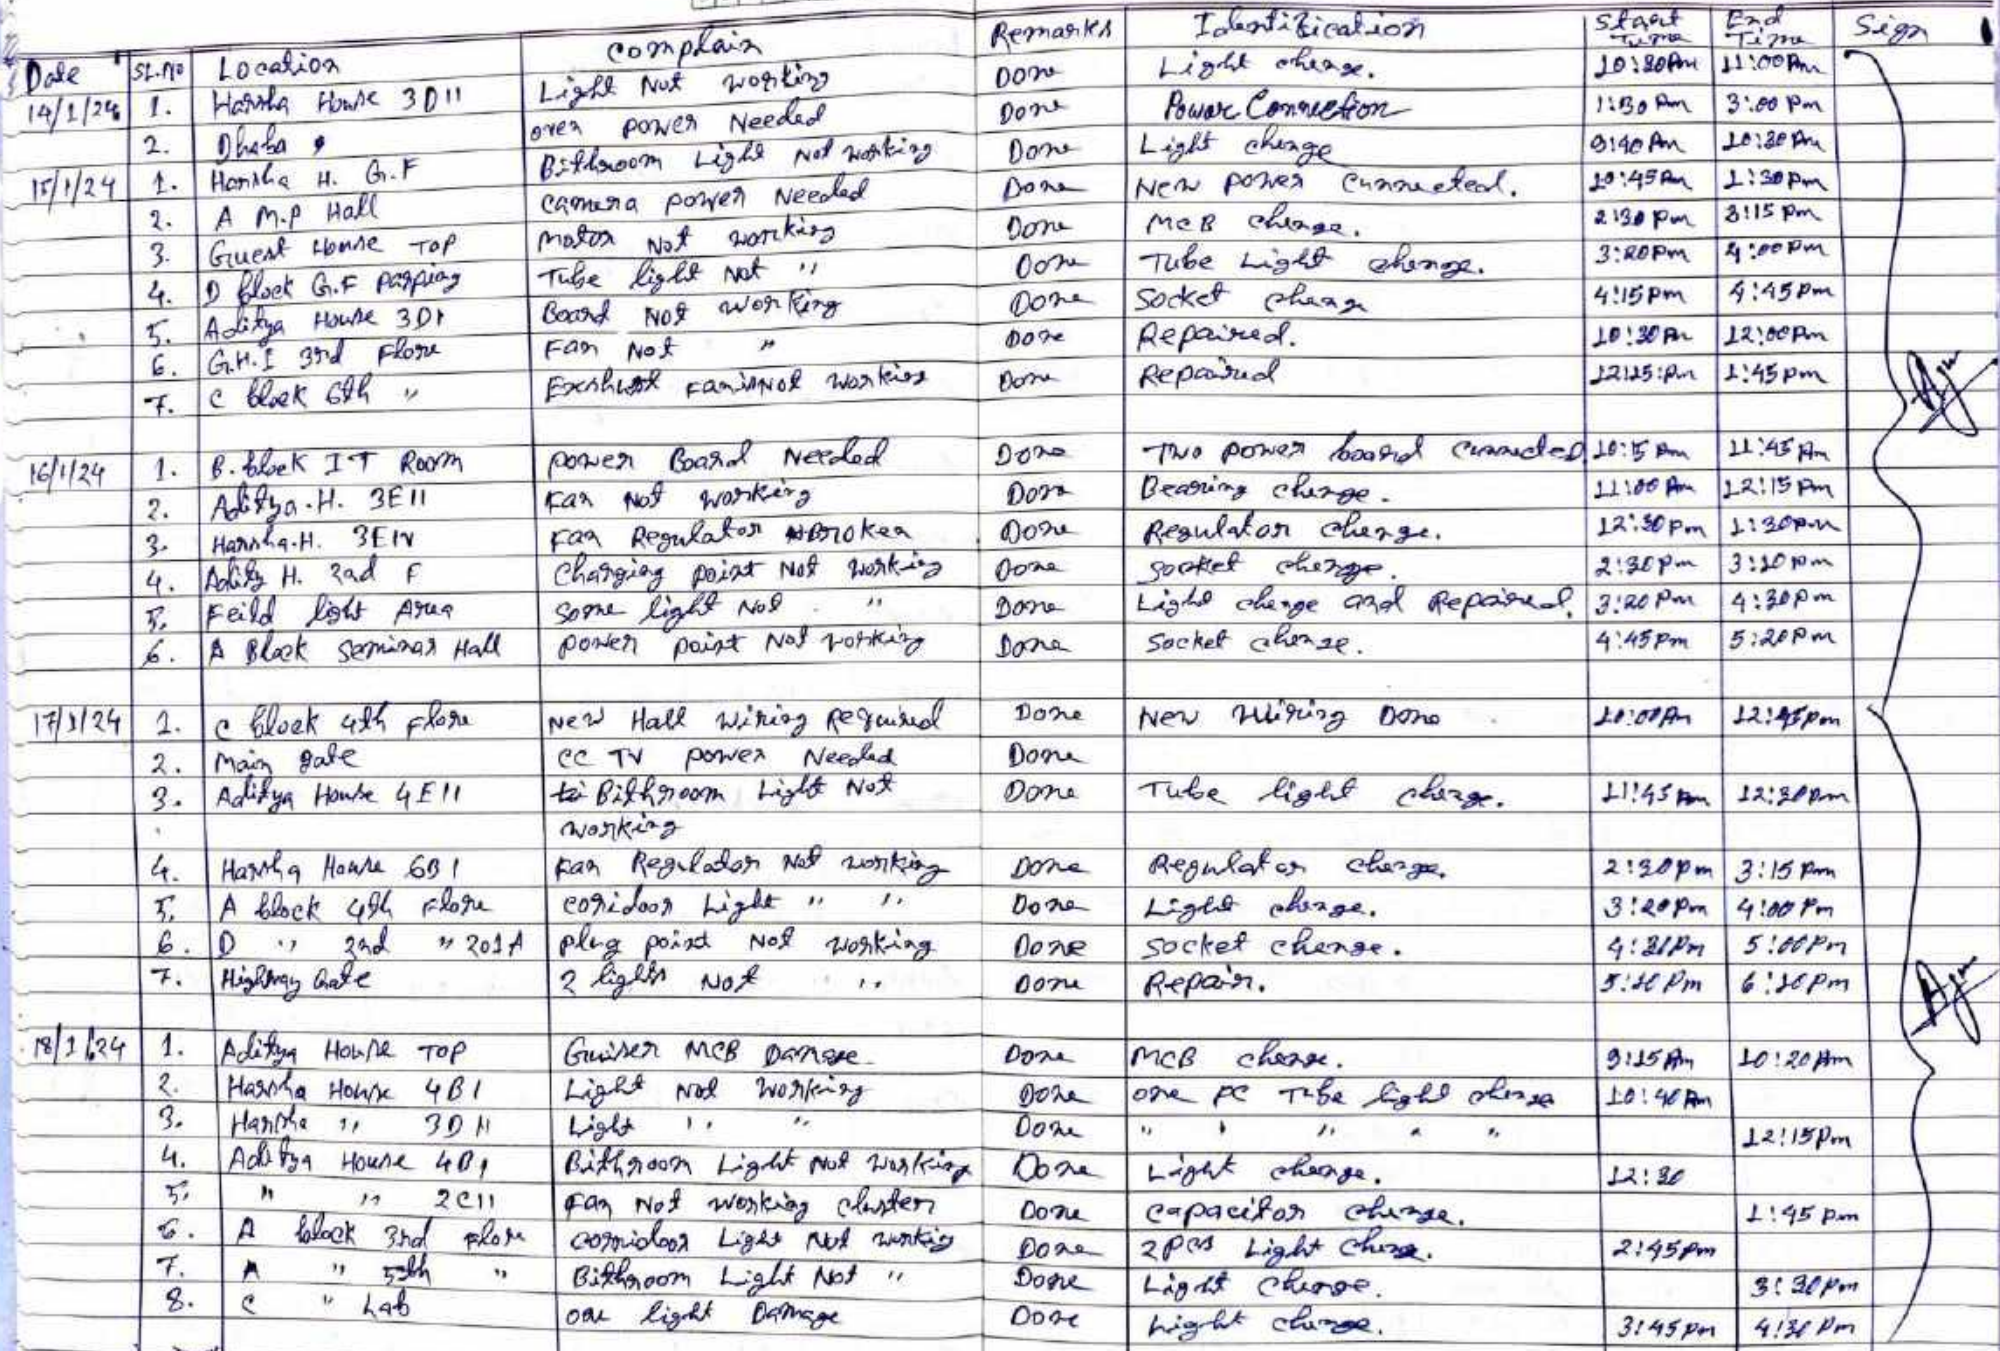 Date Sl.no Location complain Remarks Identification Start Time End Time Sign
14/1/24 1. Harsha House 3D11 Light Not working Done Light change. 10:30Am 11:00Am
2. Dhaba oven power Needed Done Power Connection 1:30 Pm 3:00 Pm
15/1/24 1. Harsha H. G.F Bithroom Light Not working Done Light change 9:40 Am 10:30 Am
2. A M.P Hall camera power Needed Done New power cunnected. 10:45Am 1:30pm
3. Guest House Top Motor Not working Done MCB change. 2:30 pm 3:15 pm
4. D block G.F Tube light Not " Done Tube Light change. 3:20pm 4:00pm
5. Aditya House 3D1 Board Not working Done Socket change 4:15pm 4:45pm
6. G.H.I 3rd Flore Fan Not " Done Repaired. 10:30 Am 12:00Pm
7. C block 6th " Exshust Not working Done Repaired 1:45pm
16/1/24 1. B.block IT Room power Board Needed Done Two power board cunnected 10:15 Am 11:45 Am
2. Aditya.H. 3E11 Fan Not working Done Bearing change. 11:00 Am 12:15pm
3. Harsha.H. 3E1V Fan Regulator Broken Done Regulator change. 12:30pm 1:30pm
4. Adity H. 2nd F Charging point Not working Done socket change. 2:30pm 3:10pm
5. Feild light Area some light Not " Done Light change and Repaired. 3:20 Pm 4:30pm
6. A Block Seminar Hall power point Not working Done Socket change. 4:45pm 5:20pm
17/1/24 1. C block 4th Flore New Hall wiring Required Done New Wiring Done 10:00Am 12:45pm
2. Main gate CC TV power Needed Done
3. Aditya House 4E11 Bithroom Light Not Done Tube light change. 11:45 Am 12:30pm
working
4. Harsha House 6B1 Fan Regulator Not working Done Regulator change. 2:30pm 3:15 pm
5. A block 4th Flore coridoor Light " " Done Light change. 3:20pm 4:00 Pm
6. D " 2nd " 201A plug point Not working Done Socket change. 4:30Pm 5:00Pm
7. Highway Gate 2 lights Not " Done Repair. 5:10 Pm 6:10 Pm
18/1/24 1. Aditya House Top Guiser MCB Damage Done MCB change. 9:15 Am 10:20 Am
2. Harsha House 4B1 Light Not working Done one PC Tube light change 10:40 Am
3. Harsha " 3D11 Light " " Done " " " " " 12:15pm
4. Aditya House 4B1 Bithroom Light Not working Done Light change. 12:30
5. " " 2C11 Fan Not working cluster Done capacitor change. 1:45 pm
6. A block 3rd Flore corridoor Light Not working Done 2PCs Light change. 2:45pm
7. A " 5th " Bithroom Light Not " Done Light change. 3:30pm
8. C " Lab one light Damage Done Light change. 3:45pm 4:30 pm